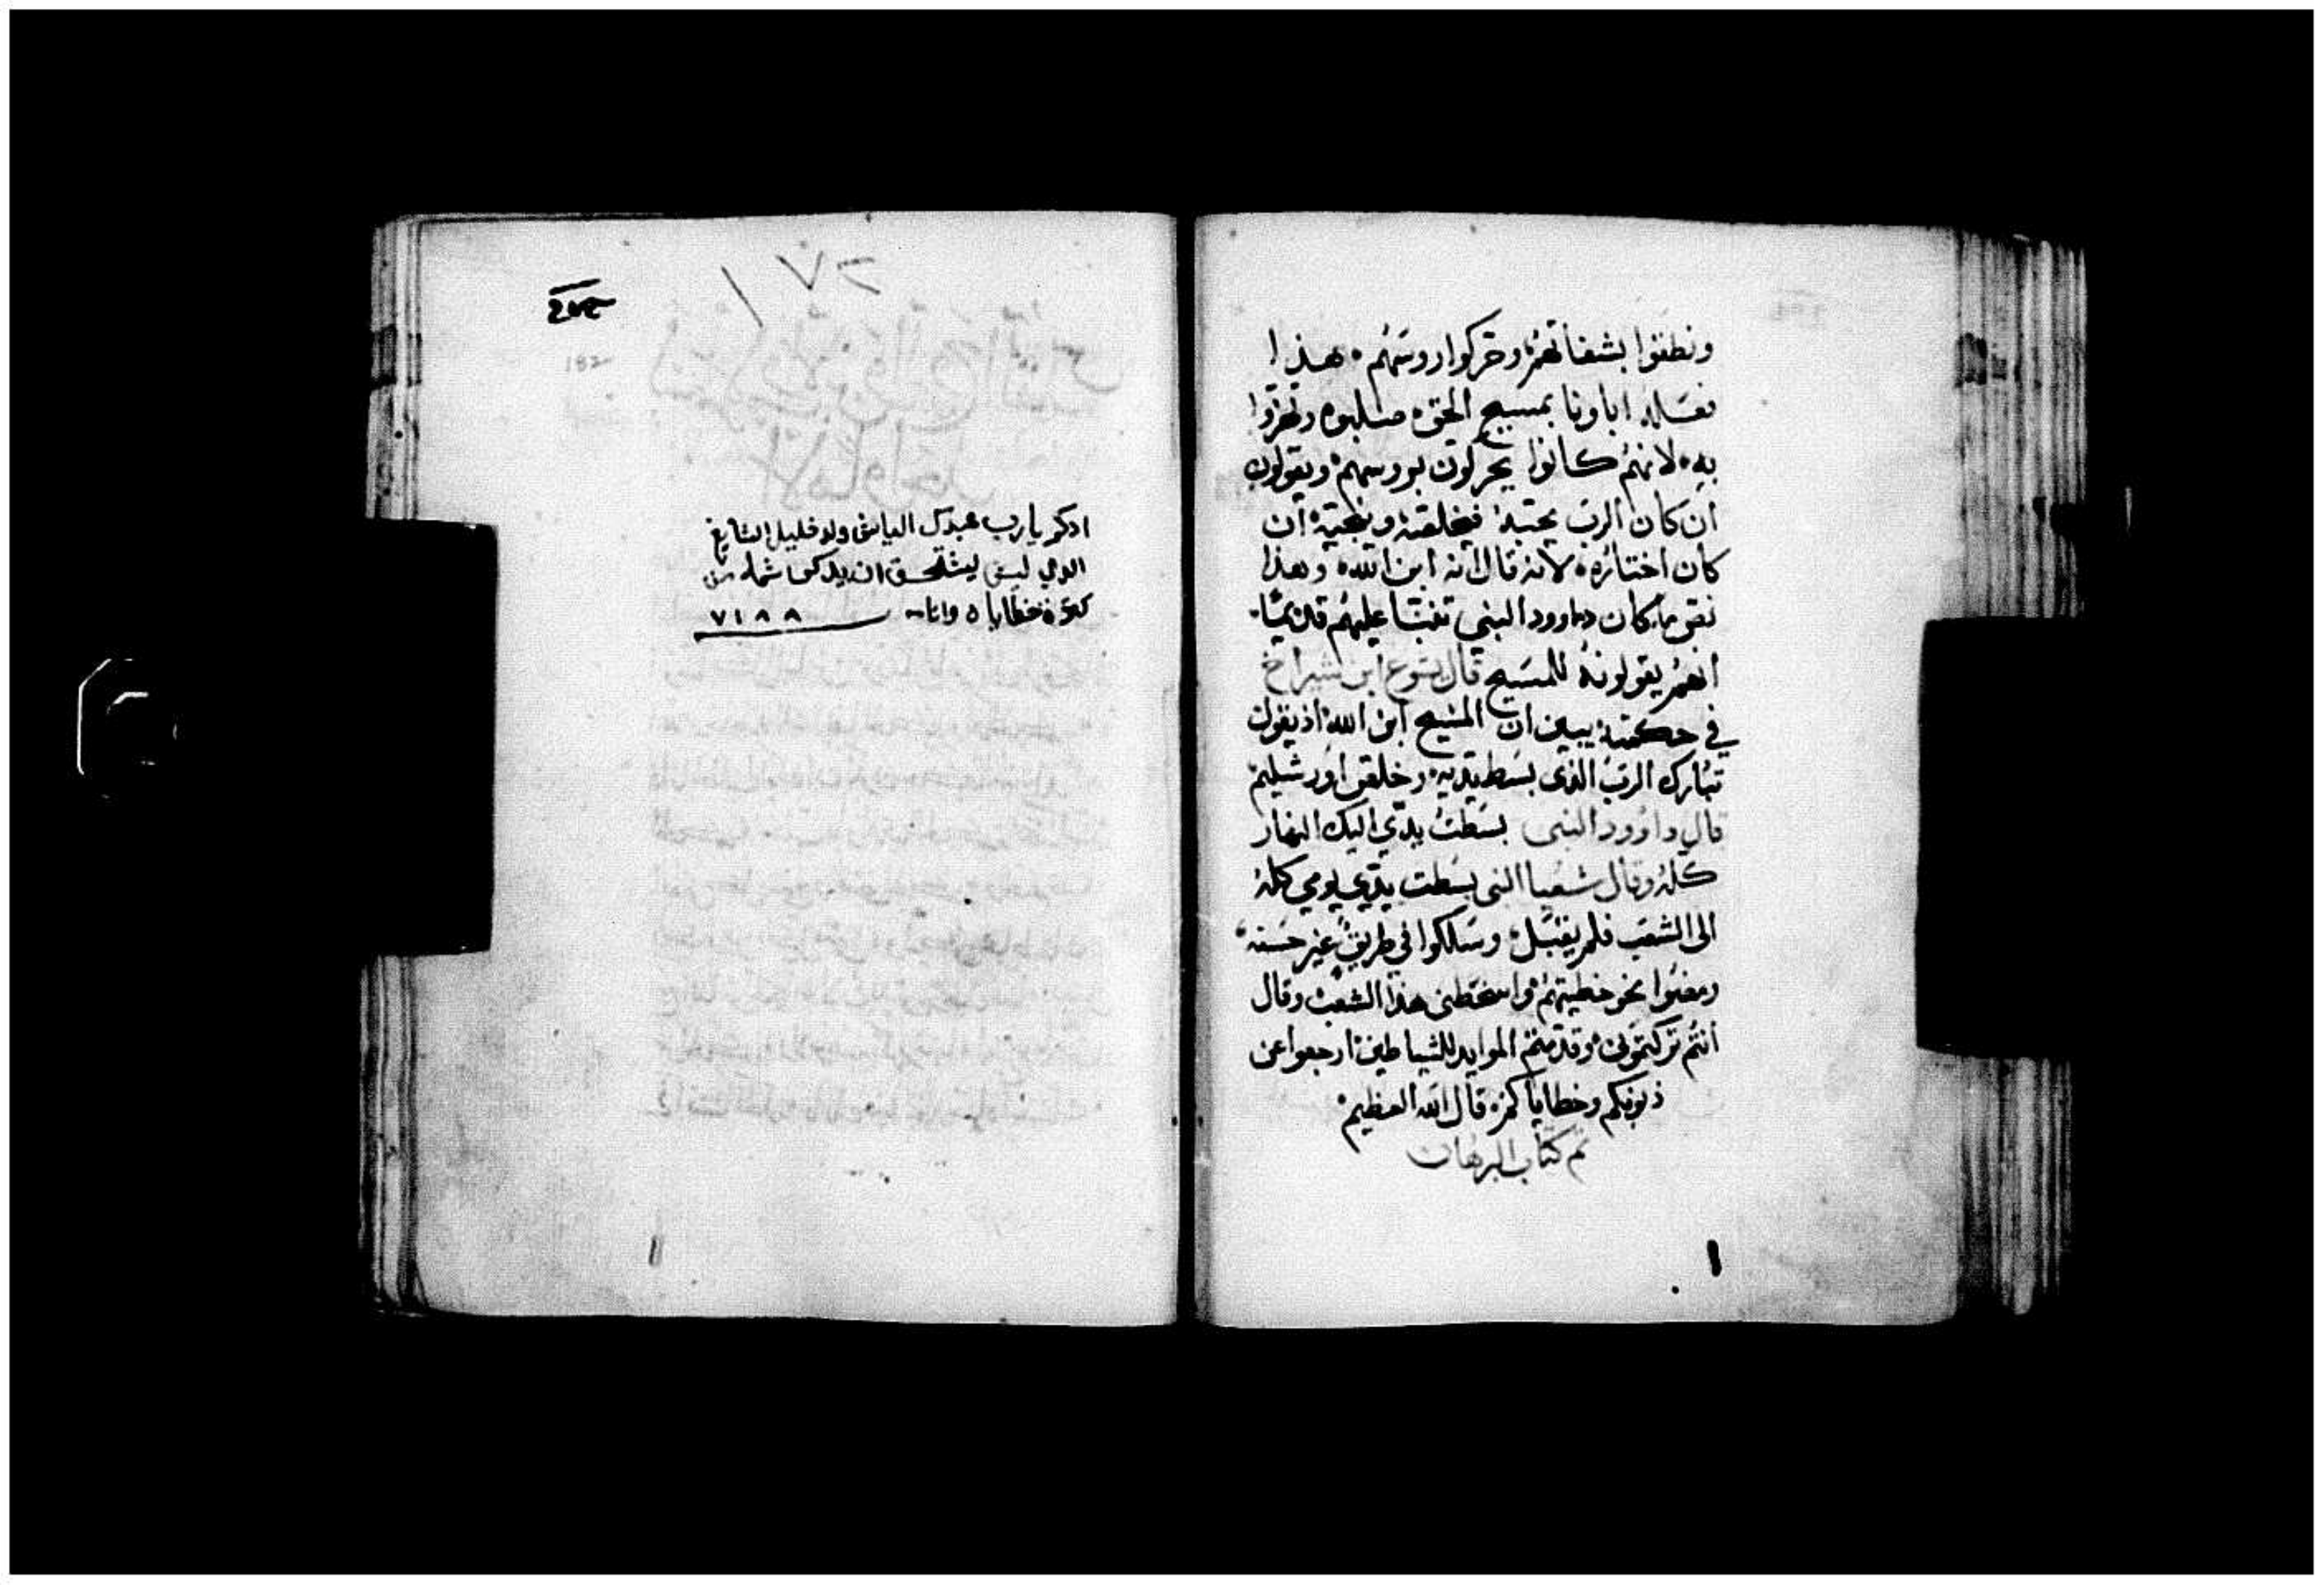 ونطقوا بشفاتهم وحركوا روسهم هذا
فعله اباونا بمسيح الحق صلبوه وتهزوا
به لانهم كانوا يحركون بروسهم ويقولون
ان كان الرب يحبه فيخلصه وينجيه ان
كان اختاره لانه قال انه ابن الله وهذا
نص ما كان داوود النبي تنبا عليهم قديمًا
انهم يقولونه للمسيح قال يشوع ابن شيراخ
في حكمته يبين ان المسيح ابن الله اذ يقول
تبارك الرب الذى بسط يديه وخلص اورشليم
قال داوود النبى بسطت يدي اليك النهار
كله وقال شعيا النبى بسطت يدي يومي كله
الى الشعب فلم يقبل وسلكوا في طريق غير حسنه
ومضوا نحو خطيتهم واسخطنى هذا الشعب وقال
انتم تركتمونى وقدمتم الموايد للشياطين ارجعوا عن
ذنوبكم وخطاياكم قال الله العظيم
تم كتاب البرهان
٢٧
182
ادكر يا رب عبدك الياس ولد خليل الصايغ
الدي ليس ليستحق ان يدكر من
كثرة خطاياه
٧١٨٨